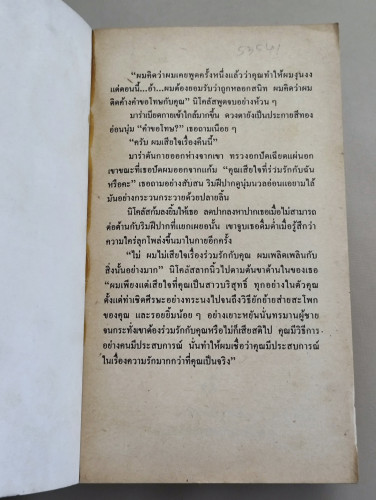 “ผมคิดว่าผมเคยพูดครั้งหนึ่งแล้วว่าคุณทำให้ผมงุนงง
แต่ตอนนี้...อ้า...ผมต้องยอมรับว่าถูกหลอกสนิท ผมคิดว่าผม
ติดค้างคำขอโทษกับคุณ” นิโคลัสพูดจบอย่างห้วน ๆ
มาร่าเบียดกายเข้าใกล้มากขึ้น ดวงตายังเป็นประกายสีทอง
อ่อนนุ่ม “คำขอโทษ?” เธอถามเนือย ๆ
“ครับ ผมเสียใจเรื่องคืนนี้”
มาร่าดันกายออกห่างจากเขา ทรวงอกปัดเฉียดแผ่นอก
เขาขณะที่เธอปัดผมออกจากแก้ม “คุณเสียใจที่ร่วมรักกับฉัน
หรือคะ” เธอถามอย่างสับสน ริมฝีปากคู่นุ่มนวลอ่อนแอยามไล้
มันอย่างกระวนกระวายด้วยปลายลิ้น
นิโคลัสก้มลงยิ้มให้เธอ ลดปากลงหาปากเธอเมื่อไม่สามารถ
ต่อต้านกับริมฝีปากที่แยกเผยอนั้น เขาจูบเธอดื่มด่ำเมื่อรู้สึกว่า
ความใคร่ลุกโพลงขึ้นมาในกายอีกครั้ง
“ไม่ ผมไม่เสียใจเรื่องร่วมรักกับคุณ ผมเพลิดเพลินกับ
สิ่งนั้นอย่างมาก” นิโคลัสลากนิ้วไปตามต้นขาด้านในของเธอ
“ผมเพียงแต่เสียใจที่คุณเป็นสาวบริสุทธิ์ ทุกอย่างในตัวคุณ
ตั้งแต่ท่าเชิดศีรษะอย่างทระนงไปจนถึงวิธียักย้ายส่ายสะโพก
ของคุณ และรอยยิ้มน้อย ๆ อย่างเยาะหยันนั่นทรมานผู้ชาย
จนกระทั่งเขาต้องร่วมรักกับคุณหรือไม่ก็เสียสติไป คุณมีวิธีการ
อย่างคนมีประสบการณ์ นั่นทำให้ผมเชื่อว่าคุณมีประสบการณ์
ในเรื่องความรักมากกว่าที่คุณเป็นจริง”